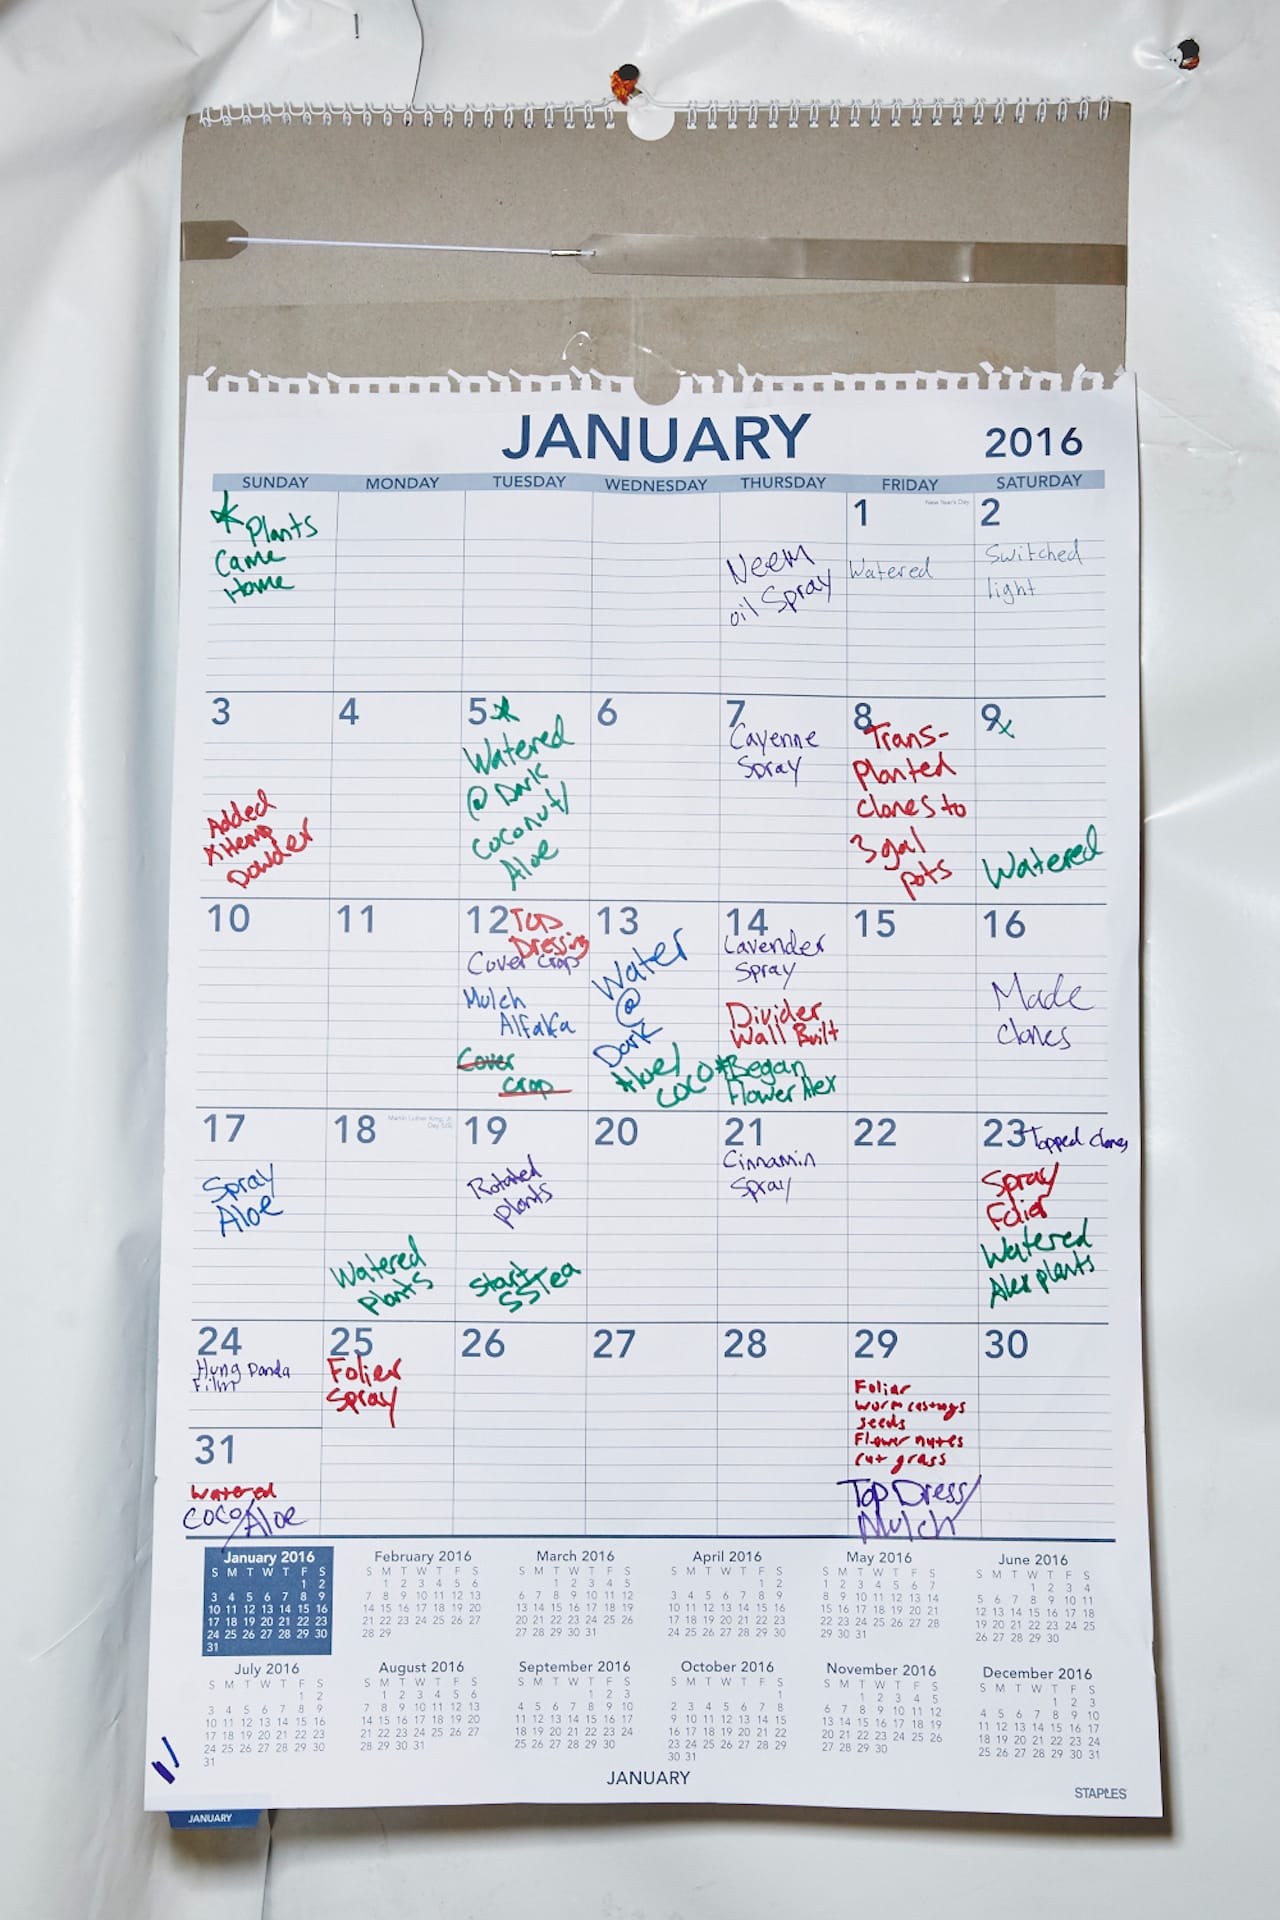 JANUARY
2016
SUNDAY MONDAY TUESDAY WEDNESDAY THURSDAY FRIDAY SATURDAY
Plants
Came
Home
Neem
oil Spray
1 New Year's Day
Watered
2
Switched
light
3
Added
Hemp
powder
4
5
Watered
@ Dark
Coconut/
Aloe
6
7
Cayenne
Spray
8
Trans-
planted
clones to
3 gal
pots
9
Watered
10
11
12 Top
Dressing
Cover crop
Mulch
Alfalfa
Cover
crop
13
Water
@
Dark
Aloe/
coco
14
Lavender
Spray
Divider
Wall Built
*Began
Flower Alex
15
16
Made
clones
17
Spray
Aloe
18 Martin Luther King, Jr.
Watered
plants
19
Rotated
plants
Start
SSTea
20
21
Cinnamin
Spray
22
23 Topped clones
Spray
Folier
Watered
Alex plants
24
Hung Panda
Film
25
Folier
Spray
26
27
28
29
Foliar
worm castings
seeds
Flower nutes
cut grass
Top Dress/
Mulch
30
31
Watered
COCO/Aloe
January 2016
S M T W T F S
1 2
3 4 5 6 7 8 9
10 11 12 13 14 15 16
17 18 19 20 21 22 23
24 25 26 27 28 29 30
31
February 2016
S M T W T F S
1 2 3 4 5 6
7 8 9 10 11 12 13
14 15 16 17 18 19 20
21 22 23 24 25 26 27
28 29
March 2016
S M T W T F S
1 2 3 4 5
6 7 8 9 10 11 12
13 14 15 16 17 18 19
20 21 22 23 24 25 26
27 28 29 30 31
April 2016
S M T W T F S
1 2
3 4 5 6 7 8 9
10 11 12 13 14 15 16
17 18 19 20 21 22 23
24 25 26 27 28 29 30
May 2016
S M T W T F S
1 2 3 4 5 6 7
8 9 10 11 12 13 14
15 16 17 18 19 20 21
22 23 24 25 26 27 28
29 30 31
June 2016
S M T W T F S
1 2 3 4
5 6 7 8 9 10 11
12 13 14 15 16 17 18
19 20 21 22 23 24 25
26 27 28 29 30
July 2016
S M T W T F S
1 2
3 4 5 6 7 8 9
10 11 12 13 14 15 16
17 18 19 20 21 22 23
24 25 26 27 28 29 30
31
August 2016
S M T W T F S
1 2 3 4 5 6
7 8 9 10 11 12 13
14 15 16 17 18 19 20
21 22 23 24 25 26 27
28 29 30 31
September 2016
S M T W T F S
1 2 3
4 5 6 7 8 9 10
11 12 13 14 15 16 17
18 19 20 21 22 23 24
25 26 27 28 29 30
October 2016
S M T W T F S
1
2 3 4 5 6 7 8
9 10 11 12 13 14 15
16 17 18 19 20 21 22
23 24 25 26 27 28 29
30 31
November 2016
S M T W T F S
1 2 3 4 5
6 7 8 9 10 11 12
13 14 15 16 17 18 19
20 21 22 23 24 25 26
27 28 29 30
December 2016
S M T W T F S
1 2 3
4 5 6 7 8 9 10
11 12 13 14 15 16 17
18 19 20 21 22 23 24
25 26 27 28 29 30 31
JANUARY
STAPLES
JANUARY